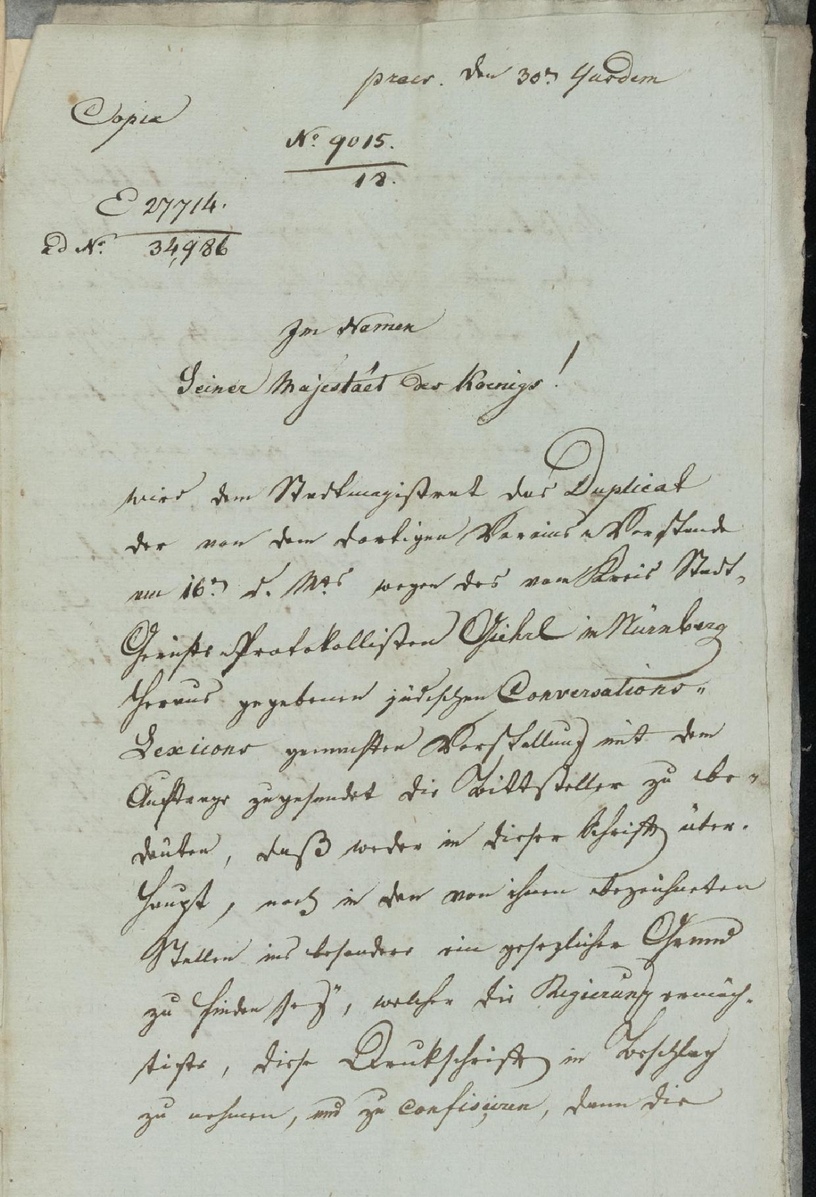 praes. den 30n
Copia
No 9015.
18.
E 27714.
ad No 34,986
Im Namen
Seiner Majestaet des Koenigs!
wird dem Stadtmagistrat das Duplicat
der von dem dortigen Vereins-Vorstande
am 16n d. Mts wegen des vom Kreis Stadt-
Gerichts-Protokollisten Giehrl in Nürnberg
heraus gegebenen jüdischen Conversations-
Lexicons gemachten Vorstellung mit dem
Auftrage zugesendet die Bittsteller zu be-
deuten, daß weder in dieser Schrift über-
haupt, noch in den von ihnen bezeichneten
Stellen ins besondere ein gesezlicher Grund
zu finden sey, welcher die Regierung ermäch-
tigte, diese Drukschrift in Beschlag
zu nehmen, und zu confisciren, denn die